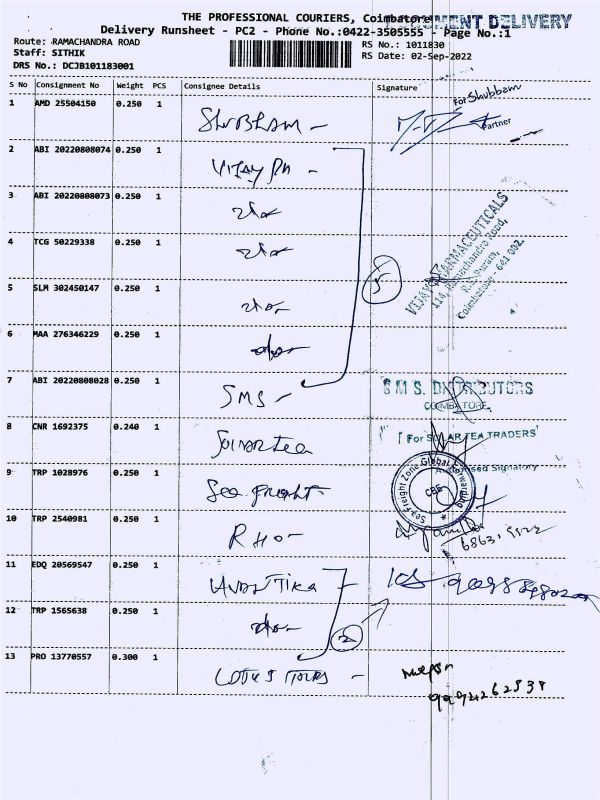 THE PROFESSIONAL COURIERS, Coimbatore
DOCUMENT DELIVERY
Delivery Runsheet - PC2 - Phone No.:0422-3505555 - Page No.:1
Route: RAMACHANDRA ROAD
RS No.: 1011830
Staff: SITHIK
RS Date: 02-Sep-2022
DRS No.: DCJB101183001
S No Consignment No Weight PCS Consignee Details Signature
1 AMD 25504150 0.250 1 SHUBHAM -
For Shubbam
Partner
2 ABI 20220808074 0.250 1 VIJAY PH -
3 ABI 20220808073 0.250 1
VIJAY PHARMACEUTICALS
114, Ramachandra Road,
R.S. Puram,
Coimbatore - 641 002.
4 TCG 50229338 0.250 1
5 SLM 302450147 0.250 1
5
6 MAA 276346229 0.250 1
7 ABI 20220808028 0.250 1 SMS -
S M S. DISTRIBUTORS
COIMBATORE.
8 CNR 1692375 0.240 1
For SOLAR TEA TRADERS
Authorised Signatory
9 TRP 1028976 0.250 1 Sea Fright
Sea Freight Zone Global Forwarding
CBE
10 TRP 2540981 0.250 1
11 EDQ 20569547 0.250 1 AVANTIKA
12 TRP 1565638 0.250 1
2
13 PRO 13770557 0.300 1 LOTUS TOURS -